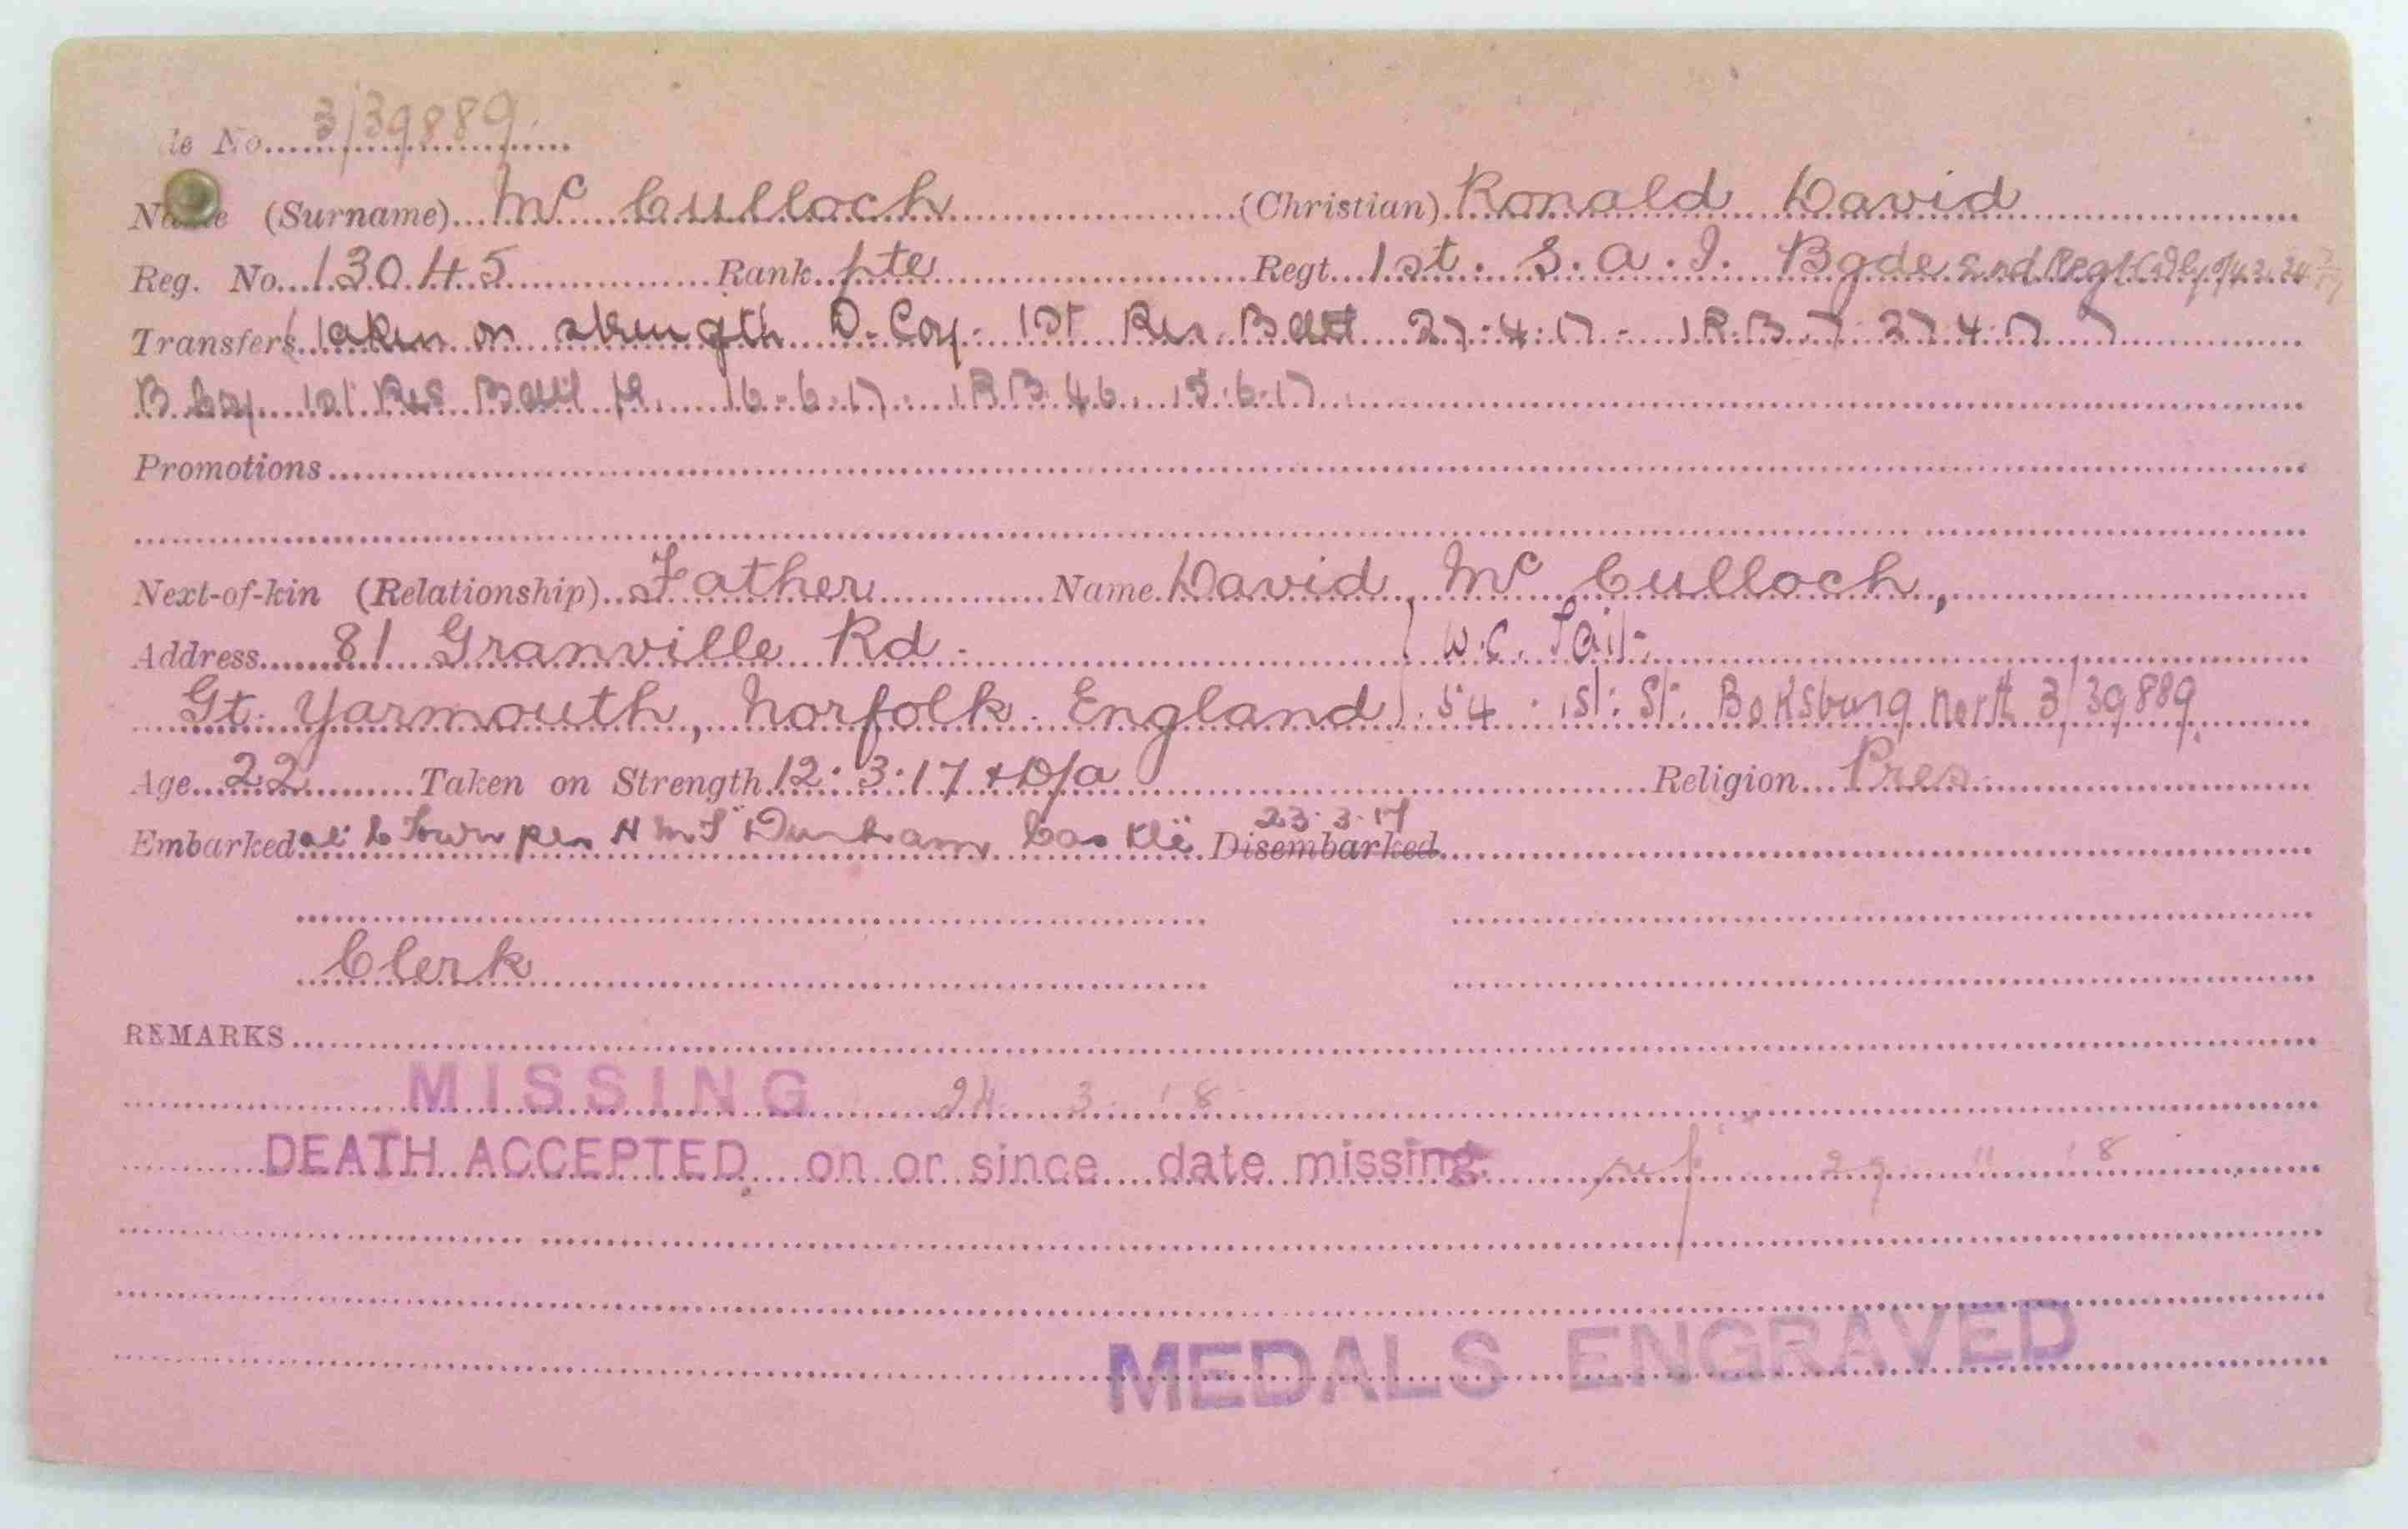 le No. 3/39889.
Name (Surname) Mc Culloch (Christian) Ronald David
Reg. No. 13045 Rank pte Regt. 1st. S. A. I. Bgde 2nd Regt
Transfers Taken on strength D. Coy. 1st Res. Batt 27.4.17. 1.R.B. 7. 27.4.17
B Coy. 1st Res Batt 16.6.17. 1RB 46. 15.6.17
Promotions
Next-of-kin (Relationship) Father Name David Mc Culloch,
Address 81 Granville Rd. W.C. Tait
Gt. Yarmouth, Norfolk. England 54. 1st. St. Boksburg North 3/39889.
Age 22 Taken on Strength 12.3.17 + D/a Religion Pres.
Embarked at C Town per HMT "Durham Castle" Disembarked 23.3.17
Clerk
REMARKS
MISSING 24 3 18
DEATH ACCEPTED on or since date missing. 29 11 18
MEDALS ENGRAVED